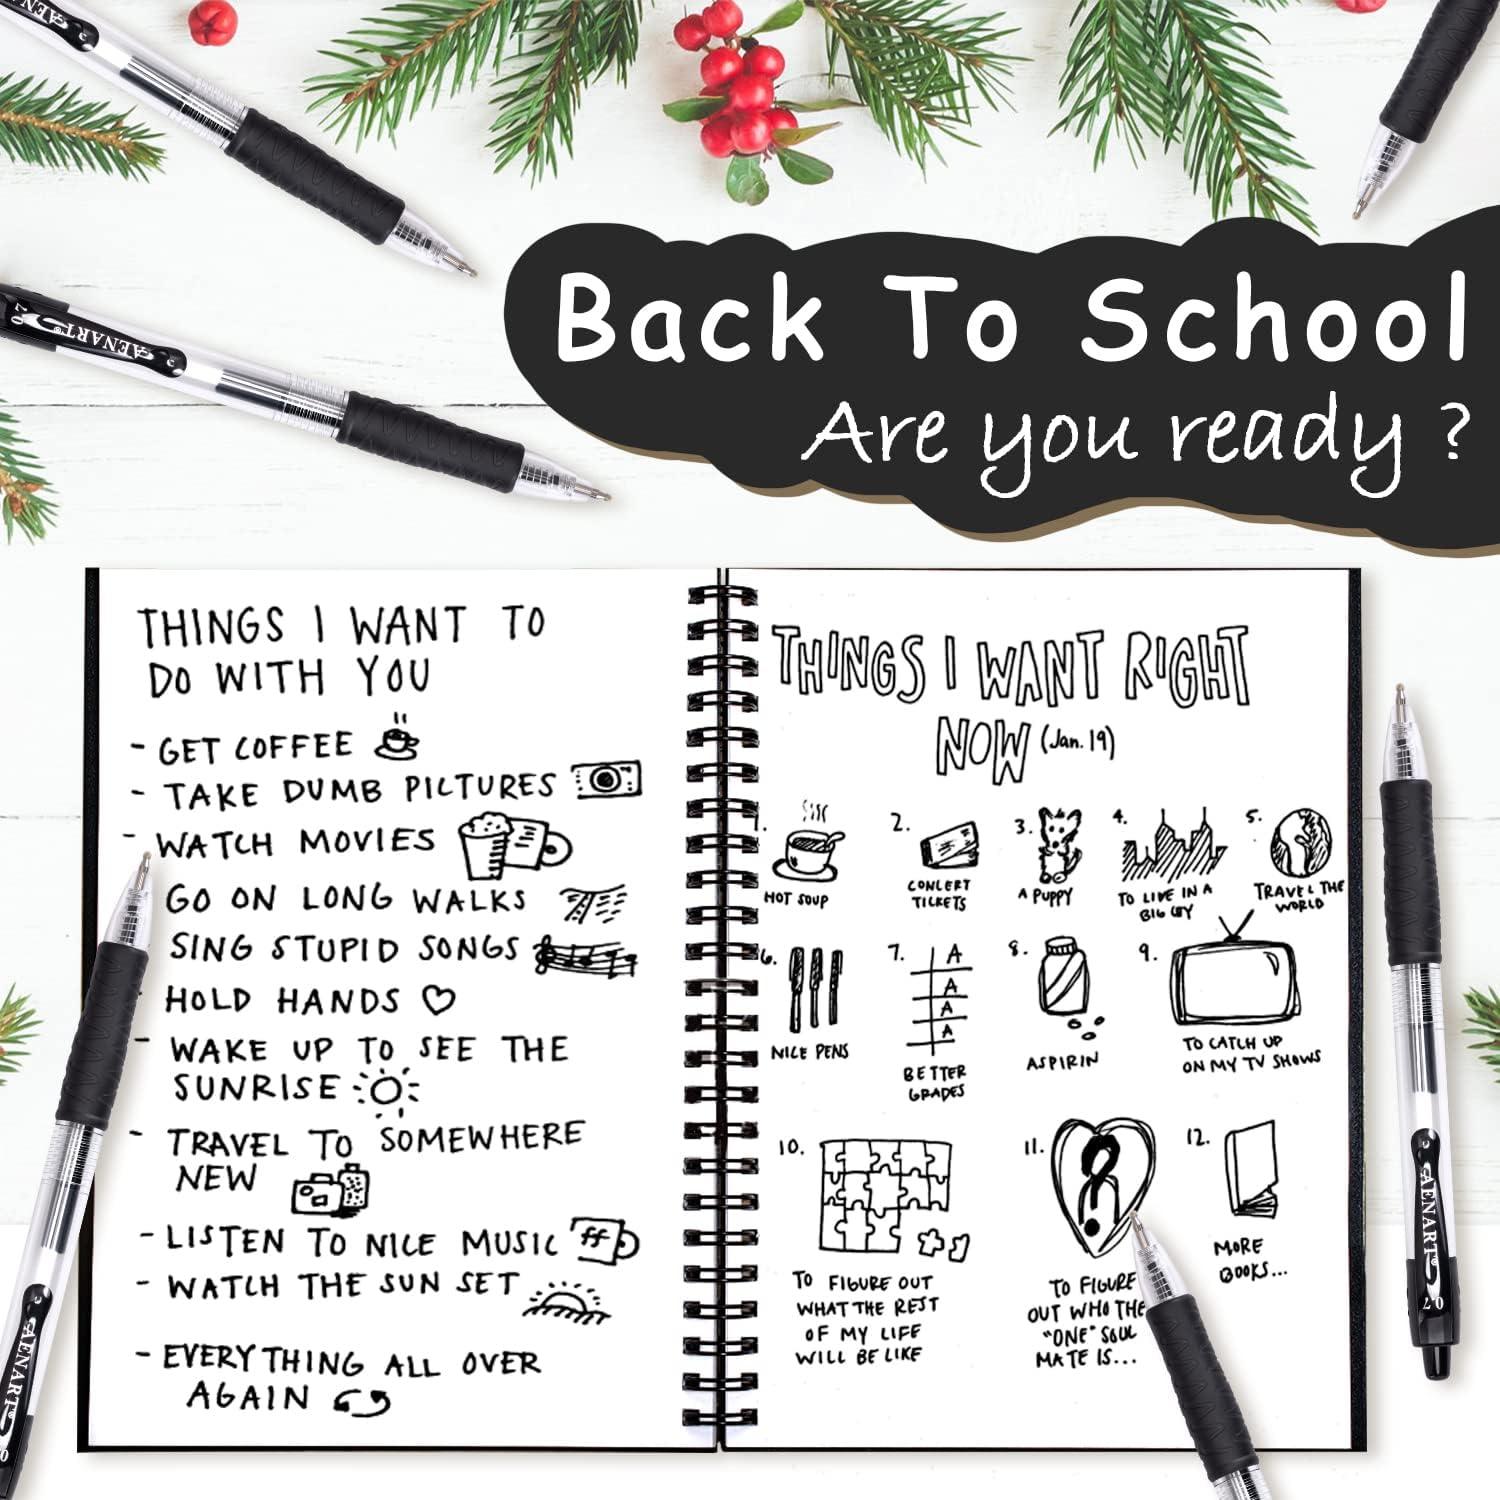 AENART
0.7
Back To School
Are you ready ?
THINGS I WANT TO
DO WITH YOU
- GET COFFEE
- TAKE DUMB PICTURES
- WATCH MOVIES
GO ON LONG WALKS
SING STUPID SONGS
HOLD HANDS
- WAKE UP TO SEE THE
SUNRISE
- TRAVEL TO SOMEWHERE
NEW
- LISTEN TO NICE MUSIC ff
- WATCH THE SUN SET
- EVERYTHING ALL OVER
AGAIN
THINGS I WANT RIGHT
NOW (Jan. 19)
1. HOT SOUP
2. CONCERT
TICKETS
3. A PUPPY
4. TO LIVE IN A
BIG CITY
5. TRAVEL THE
WORLD
6. NICE PENS
7. A
A
A
A
BETTER
GRADES
8. ASPIRIN
9. TO CATCH UP
ON MY TV SHOWS
10. TO FIGURE OUT
WHAT THE REST
OF MY LIFE
WILL BE LIKE
11. ?
TO FIGURE
OUT WHO THE
"ONE" SOUL
MATE IS...
12. MORE
BOOKS...
AENART
0.7
AENART
0